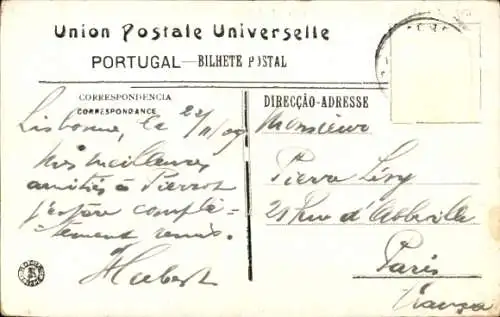 Union Postale Universelle
PORTUGAL—BILHETE POSTAL
CORRESPONDENCIA
CORRESPONDANCE
DIRECÇÃO-ADRESSE
Lisbonne, le 22/11/09
Mes meilleures
amitiés à Pierrot
j'espère complè-
tement remis.
Hubert
Monsieur
Pierre Lévy
21 Rue d'Abbeville
Paris
France